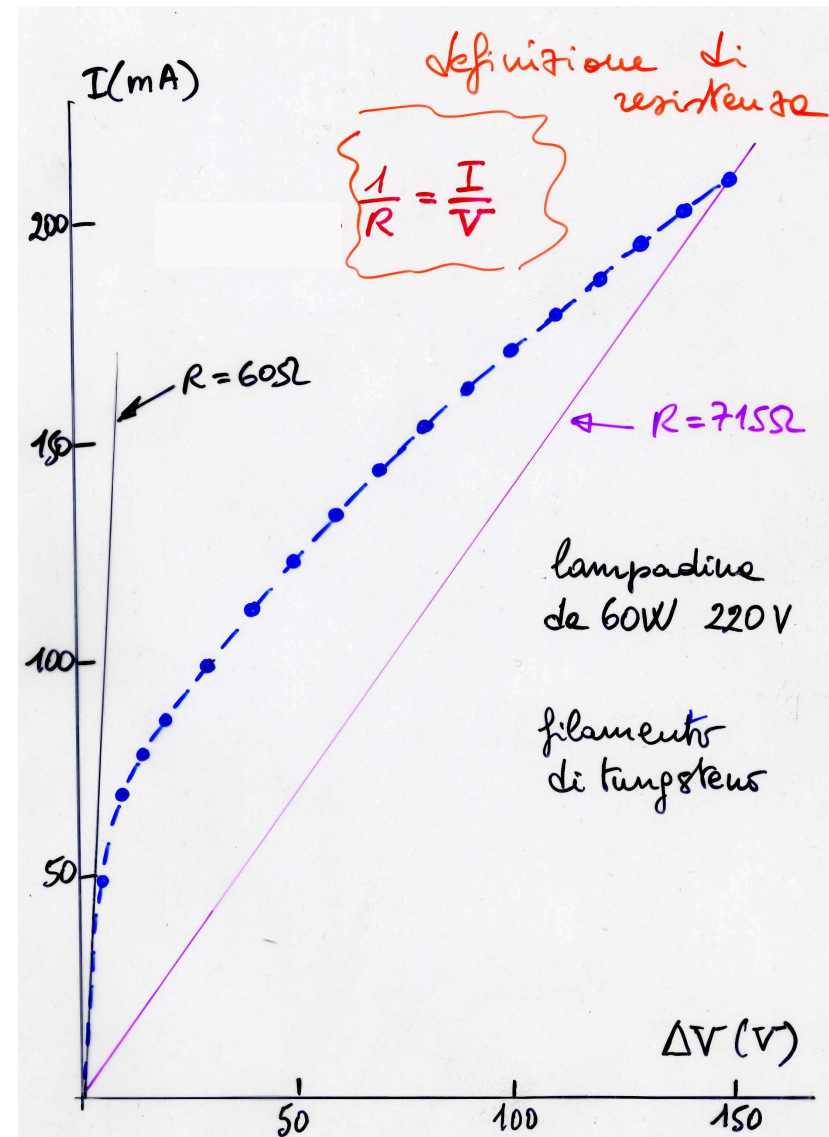 I(mA)
definizione di
resistenza
1/R = I/V
200
R = 60Ω
150
R = 715Ω
lampadina
da 60W 220 V
100
filamento
di tungsteno
50
ΔV (V)
50 100 150